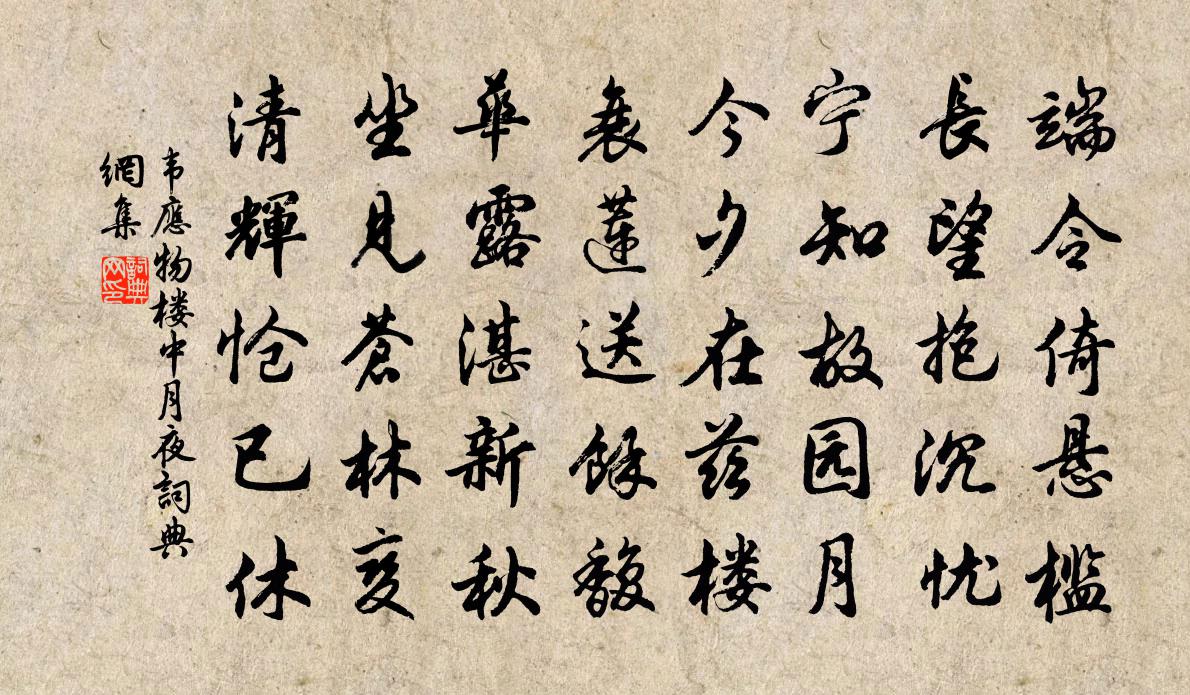 端令倚悬槛
長望抱沉忧
宁知故园月
今夕在茲楼
衰蓮送餘馥
華露湛新秋
坐見蒼林变
清輝怆已休
韦應物楼中月夜詞典
網集
詞典
网印